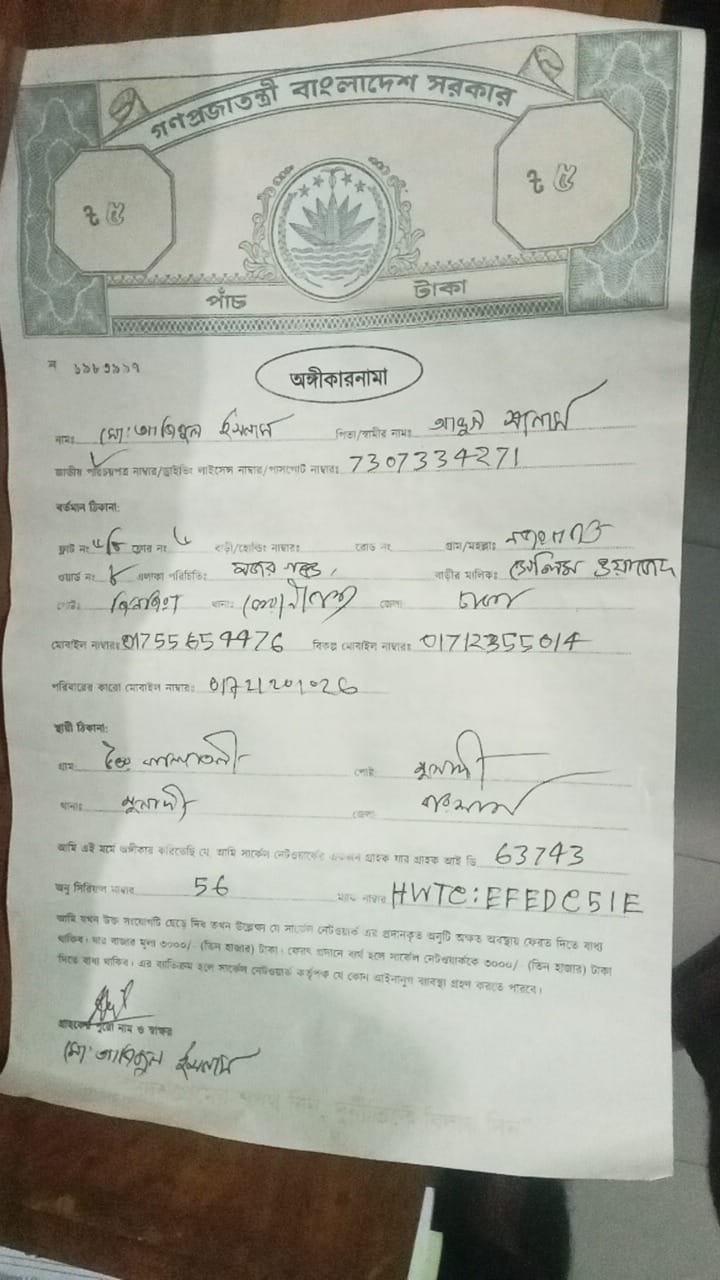 গণপ্রজাতন্ত্রী বাংলাদেশ সরকার
৳ ৫ ৳ ৫
পাঁচ টাকা
অঙ্গীকারনামা
নামঃ মো: আজিজুল ইসলাম পিতা/স্বামীর নামঃ আব্দুস সালাম
জাতীয় পরিচয়পত্র নাম্বার/ড্রাইভিং লাইসেন্স নাম্বার/পাসপোর্ট নাম্বারঃ 7307334271
বর্তমান ঠিকানা:
ফ্লাট নং ফ্লোর নং বাড়ী/হোল্ডিং নাম্বারঃ রোড নং গ্রাম/মহল্লাঃ
ওয়ার্ড নং ৮ এলাকা পরিচিতি: বাড়ীর মালিক: সেলিম
পোষ্ট: জিনজিরা থানাঃ কেরানীগঞ্জ জেলা ঢাকা
মোবাইল নাম্বারঃ 01755659476 বিকল্প মোবাইল নাম্বারঃ 01712355014
পরিবারের কারো মোবাইল নাম্বারঃ 01721201026
স্থায়ী ঠিকানা:
গ্রাম পোষ্ট মুলাদী
থানাঃ মুলাদী জেলা বরিশাল
আমি এই মর্মে অঙ্গীকার করিতেছি যে, আমি সার্কেল নেটওয়ার্কের একজন গ্রাহক যার গ্রাহক আই ডি 63743
অনু সিরিয়াল নাম্বার 56 ম্যাক নাম্বার HWTC:EFEDC51E
আমি যখন উক্ত সংযোগটি ছেড়ে দিব তখন উল্লেক্ষ্য যে সার্কেল নেটওয়ার্ক এর প্রদানকৃত অনুটি অক্ষত অবস্থায় ফেরত দিতে বাধ্য
থাকিব। যার বাজার মূল্য ৩০০০/- (তিন হাজার) টাকা। ফেরৎ প্রদানে ব্যর্থ হলে সার্কেল নেটওয়ার্ককে ৩০০০/- (তিন হাজার) টাকা
দিতে বাধ্য থাকিব। এর ব্যতিক্রম হলে সার্কেল নেটওয়ার্ক কর্তৃপক্ষ যে কোন আইনানুগ ব্যবস্থা গ্রহণ করতে পারবে।
গ্রাহকের পুরো নাম ও স্বাক্ষর
মো: আজিজুল ইসলাম